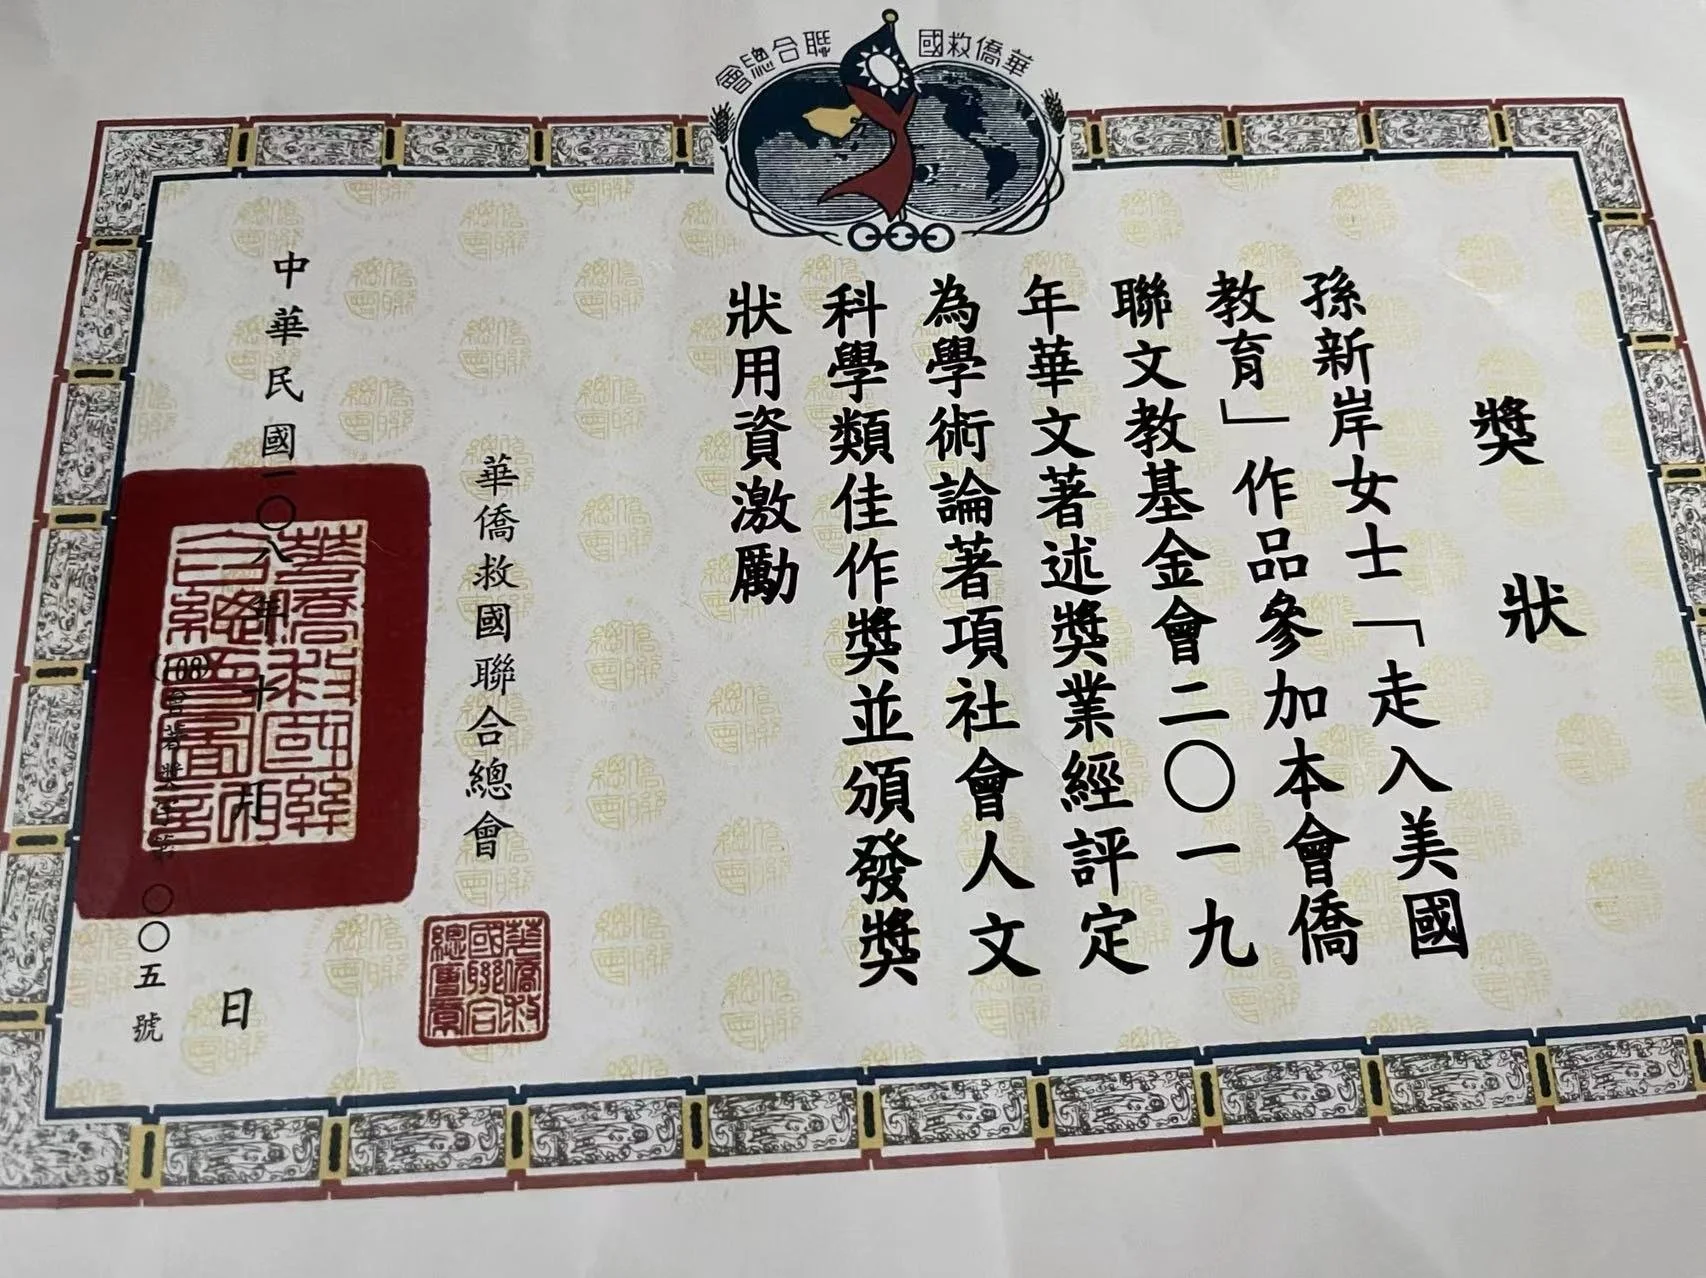 華僑救國聯合總會
獎狀
孫新岸女士「走入美國
教育」作品參加本會僑
聯文教基金會二〇一九
年華文著述獎業經評定
為學術論著項社會人文
科學類佳作獎並頒發獎
狀用資激勵
華僑救國聯合總會
中華民國一〇八年十月 日
(108)會著獎字第〇〇五號